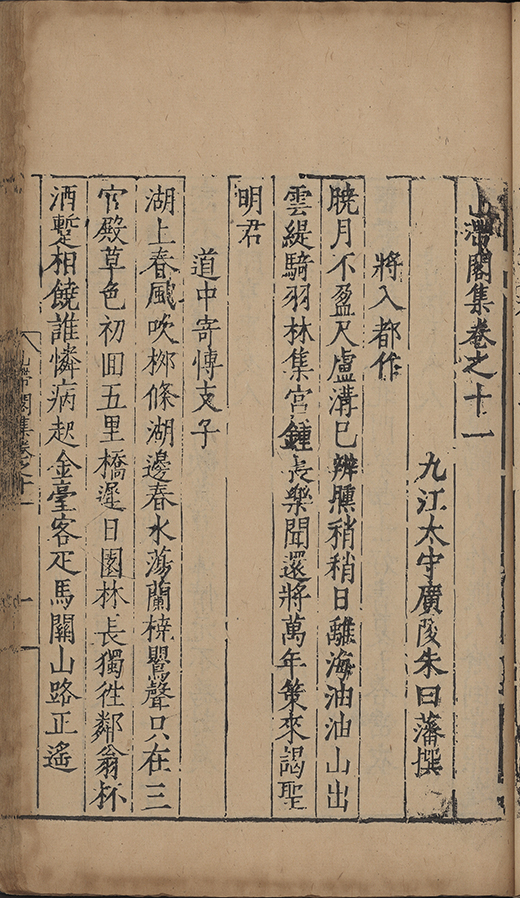 山帶閣集卷之十一
九江太守廣陵朱曰藩撰
將入都作
曉月不盈尺盧溝已辨曛稍稍日離海油油山出
雲緹騎羽林集宮鍾長樂聞還將萬年策來謁聖
明君
道中寄傅支子
湖上春風吹栁條湖邊春水蕩蘭橈鸎聲只在三
官殿草色初回五里橋遲日園林長獨徃鄰翁杯
酒蹔相饒誰憐病起金臺客疋馬關山路正遙
山帶閣集卷之十一
一